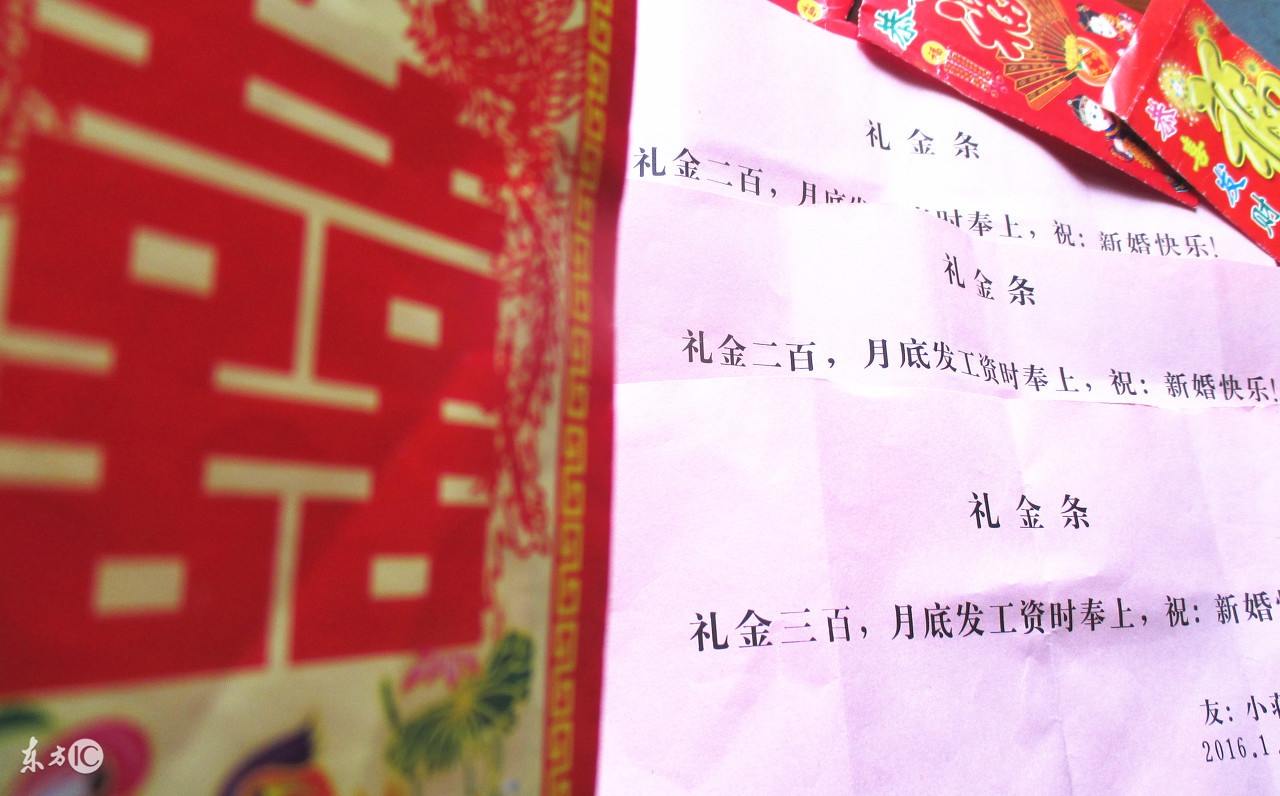 囍
恭 福
恭喜发财 福
礼金条
礼金二百，月底 时奉上，祝：新婚快乐！
礼金条
礼金二百，月底发工资时奉上，祝：新婚快乐！
礼金条
礼金三百，月底发工资时奉上，祝：新婚
友：小
2016.1
东方IC